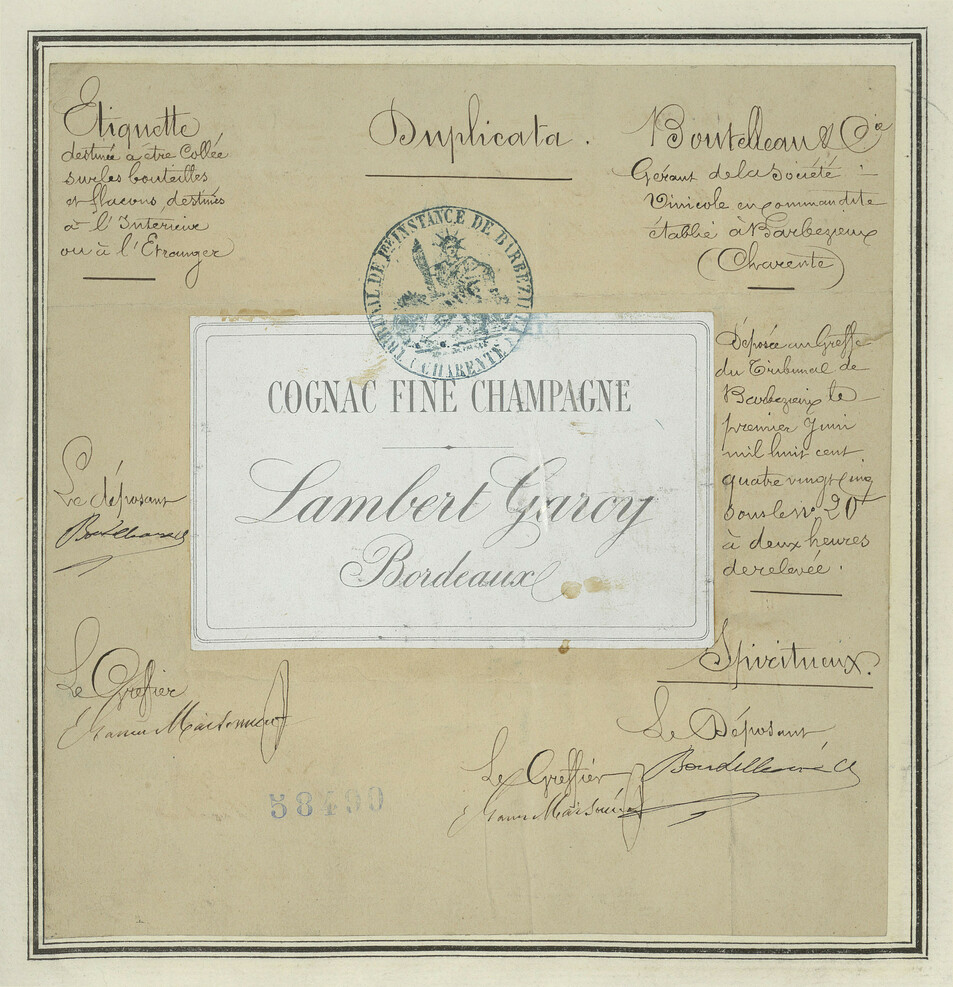 Etiquette
destinée a être Collée
sur les bouteilles
et flacons, destinés
à l'Intérieur
ou à l'Etranger
Duplicata.
Boutelleau & Cie
Gérant de la Société
Vinicole en commandite
établie à Barbezieux
(Charente)
TRIBUNAL DE 1ERE INSTANCE DE BARBEZIEUX
(CHARENTE)
COGNAC FINE CHAMPAGNE
Lambert Garoy
Bordeaux
Déposée au Greffe
du Tribunal de
Barbezieux le
premier Juin
mil huit cent
quatre vingt cinq
sous le No 20
à deux heures
de relevée.
Le déposant
Boutelleau & C
Spiritueux.
Le Greffier
Le Déposant
Boutelleau & C
Le Greffier
58490